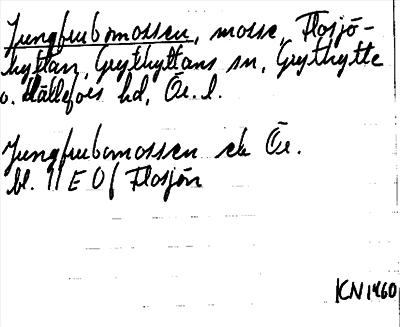 Jungfrubomossen, mosse, Flosjö-
hyttan, Grythyttans sn, Grythytte
o. Hällefors hd, Ör. l.
Jungfrubomossen ek Ör.
bl. 11 E 0 f Flosjön
KN 1960